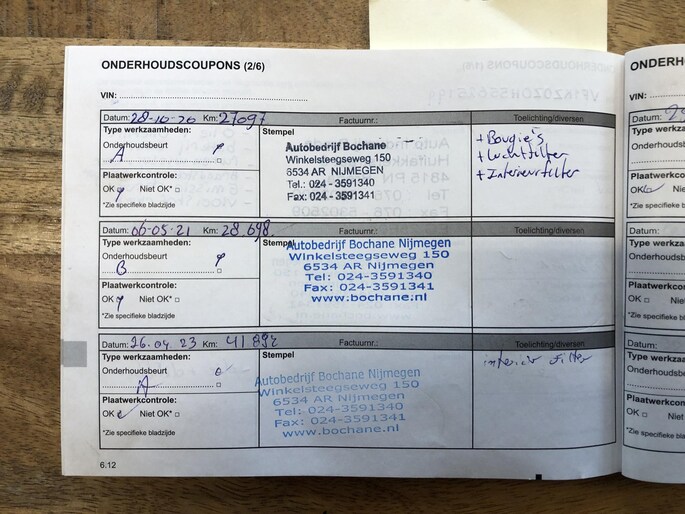 ONDERHOUDSCOUPONS (2/6)
VIN:
Datum: 28-10-20 Km: 27097 Factuurnr.: Toelichting/diversen
Type werkzaamheden:
Onderhoudsbeurt
A
Plaatwerkcontrole:
OK Niet OK*
*Zie specifieke bladzijde
Stempel
Autobedrijf Bochane
Winkelsteegseweg 150
6534 AR NIJMEGEN
Tel.: 024 - 3591340
Fax: 024 - 3591341
+ Bougie's
+ Luchtfilter
+ Interieurfilter
Datum: 06-05-21 Km: 28.698 Factuurnr.: Toelichting/diversen
Type werkzaamheden:
Onderhoudsbeurt
B
Plaatwerkcontrole:
OK Niet OK*
*Zie specifieke bladzijde
Stempel
Autobedrijf Bochane Nijmegen
Winkelsteegseweg 150
6534 AR Nijmegen
Tel: 024-3591340
Fax: 024-3591341
www.bochane.nl
Datum: 26.04.23 Km: 41892 Factuurnr.: Toelichting/diversen
Type werkzaamheden:
Onderhoudsbeurt
A
Plaatwerkcontrole:
OK Niet OK*
*Zie specifieke bladzijde
Stempel
Autobedrijf Bochane Nijmegen
Winkelsteegseweg 150
6534 AR Nijmegen
Tel: 024-3591340
Fax: 024-3591341
www.bochane.nl
interior filter
6.12
ONDERH
VIN:
Datum:
Type werkza
Onderhoudsb
Plaatwerkco
OK
*Zie specifieke
Datum:
Type werkza
Onderhoudsb
Plaatwerkco
OK
*Zie specifieke
Datum:
Type werkza
Onderhoudsb
Plaatwerkco
OK
*Zie specifieke